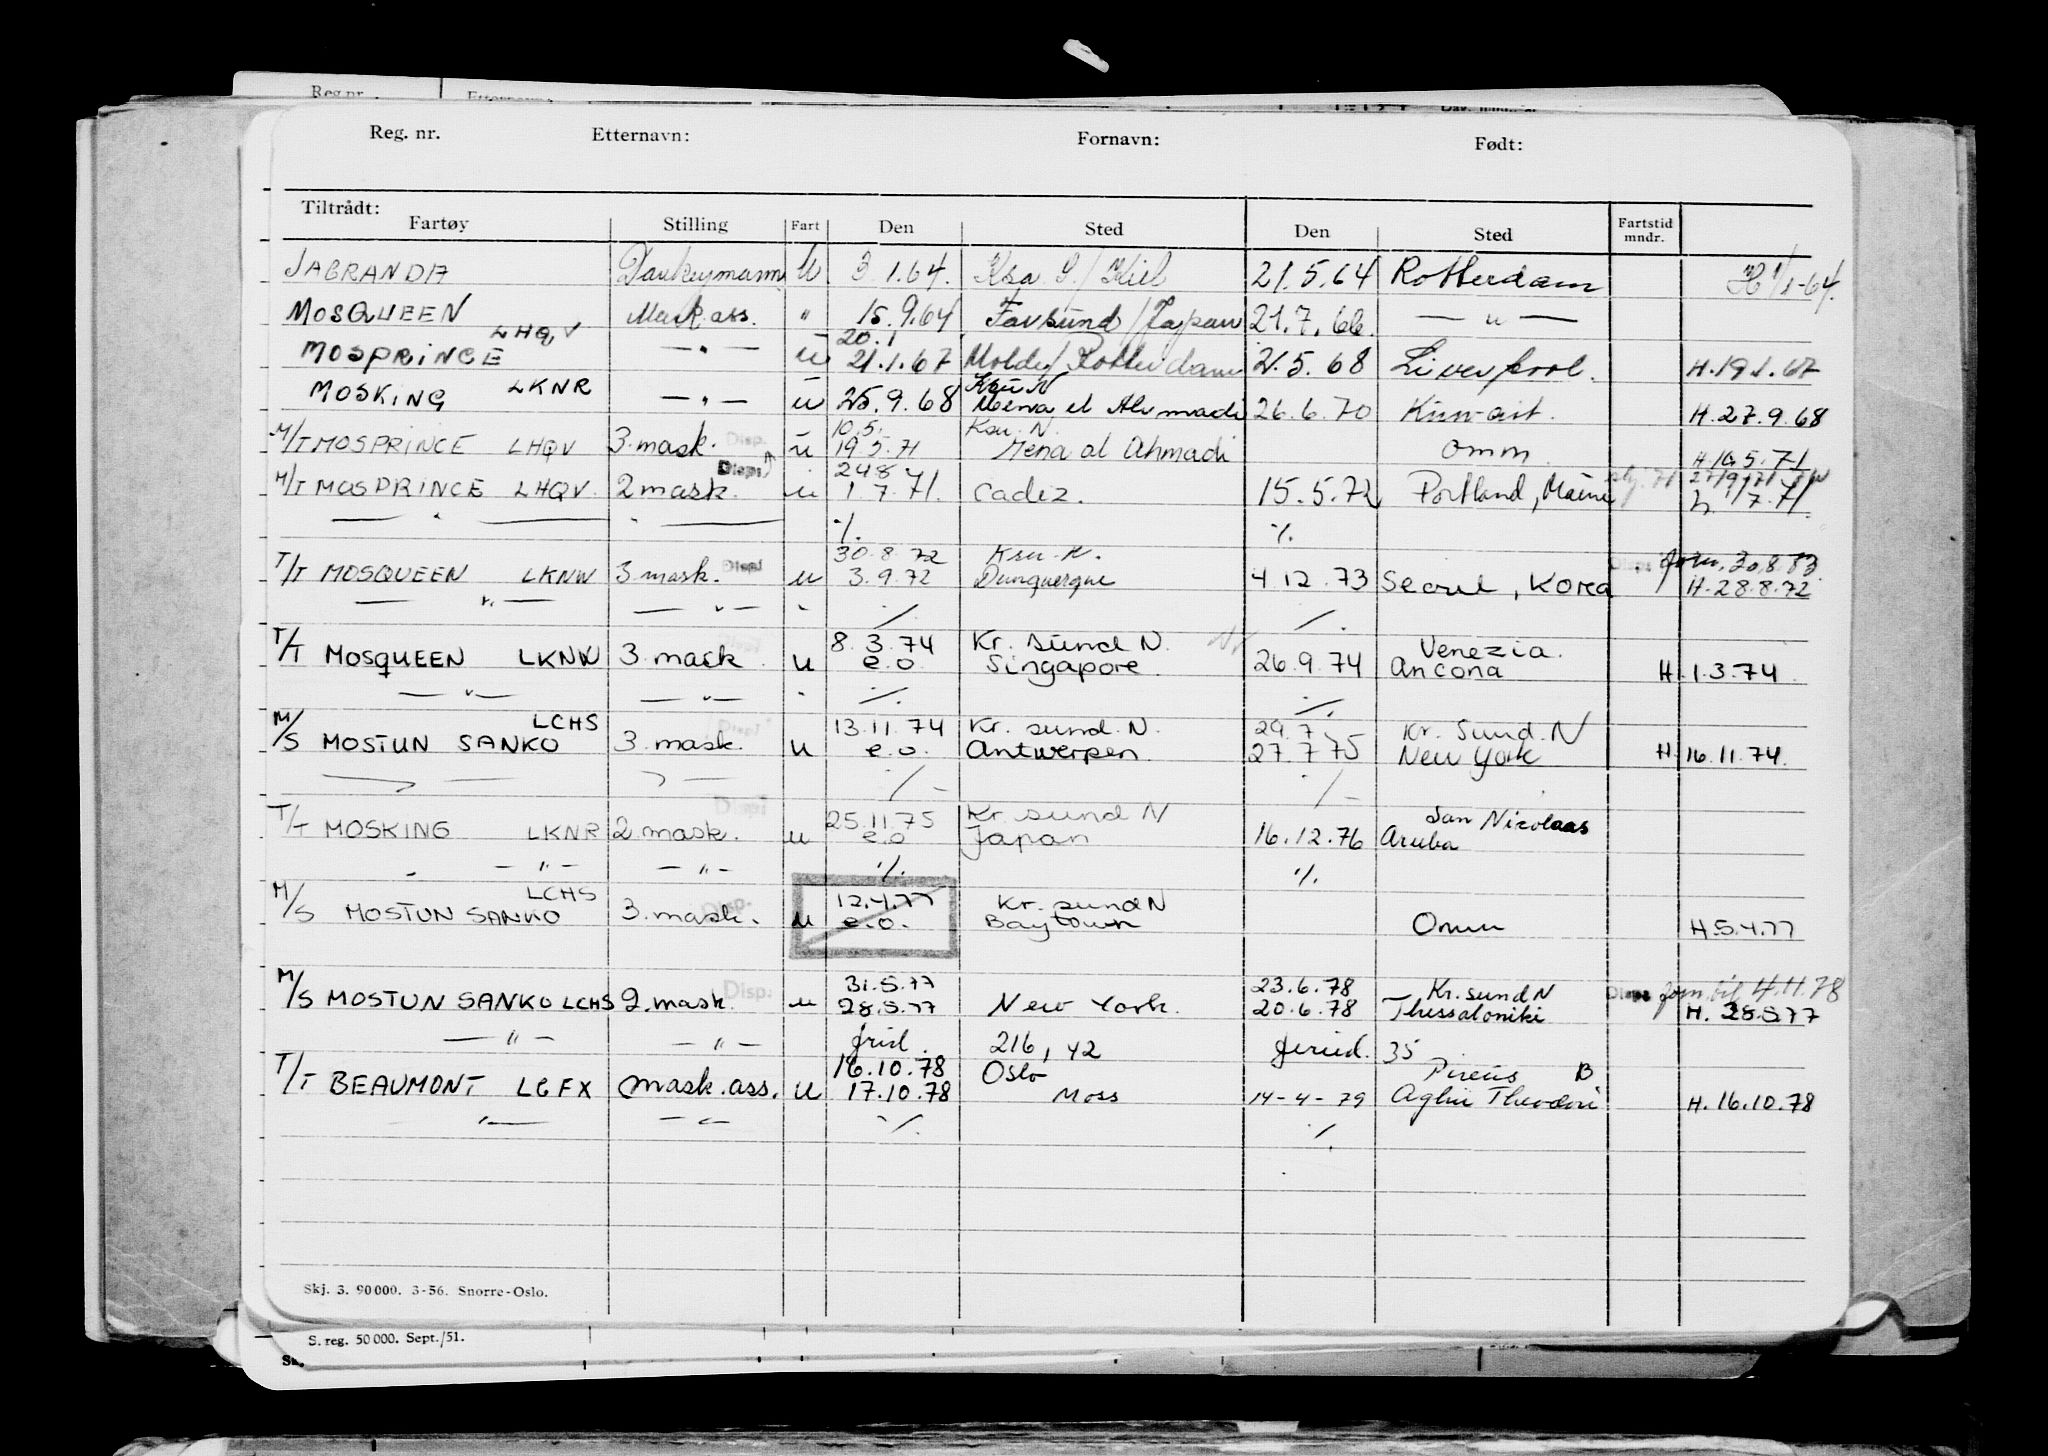 Reg. nr. Etternavn: Fornavn: Født:
Tiltrådt:
Fartøy Stilling Fart Den Sted Den Sted Fartstid mndr.
JABRANDA Donkeymann U 3.1.64. Ksa S/Kiel 21.5.64 Rotterdam H 1/1-64.
MOSQUEEN Mask.ass. " 15.9.64 /Japan 21.7.66. — " —
LHQV 20.1
MOSPRINCE — " — u 21.1.67 Molde/Rotterdam 21.5.68 Liverpool. H.19.1.67
LKNR Ksu N
MOSKING — " — u 25.9.68 Mena el Ahmadi 26.6.70 H.27.9.68
10.5. Ksu. N.
M/T MOSPRINCE LHQV 3.mask. Disp. u 19.5.71 Mena al Ahmadi omm. H.10.5.71
Disp. 24.8.71
M/T MOSPRINCE LHQV. 2 mask. u 1.7.71. Cadiz. 15.5.72 Portland, Maine h 1/7.71.
— " — — " — ./. ./.
30.8.72 Ksu. N.
T/T MOSQUEEN LKNW 3.mask. Disp. u 3.9.72 Dunquerque 4.12.73 Seoul, Korea Disp. H.28.8.72
— " — — " — " ./. ./.
8.3.74 Kr. sund N. Venezia.
T/T MOSQUEEN LKNW 3.mask u e.o. Singapore. 26.9.74 Ancona H.1.3.74.
— " — — " — " ./. ./.
LCHS 13.11.74 Kr. sund. N. 29.7 Kr. Sund. N
M/S MOSTUN SANKO 3.mask. u e.o. Antwerpen. 27.7.75 New York H.16.11.74.
— " — — " — ./. ./.
Disp. 25.11.75 Kr. sund N San Nicolaas
T/T MOSKING LKNR 2.mask. u e.o. Japan 16.12.76 Aruba
— " — — " — ./. ./.
LCHS 12.4.77 Kr. sund N
M/S MOSTUN SANKO 3.mask. Disp. u e.o. Baytown Omm H.5.4.77
31.5.77 23.6.78 Kr. sund N Disp. 4.11.78
M/S MOSTUN SANKO LCHS 2.mask. Disp. u 28.5.77 New York. 20.6.78 Thessaloniki H. 28.5.77
— " — — " — 216, 42 35
16.10.78 Oslo Pireus B
T/T BEAUMONT LGFX mask.ass. u 17.10.78 Moss 14-4-79 Aghii Theodori H.16.10.78
— " — — " — ./. ./.
Skj. 3. 90000. 3-56. Snorre-Oslo.
S. reg. 50000. Sept./51.